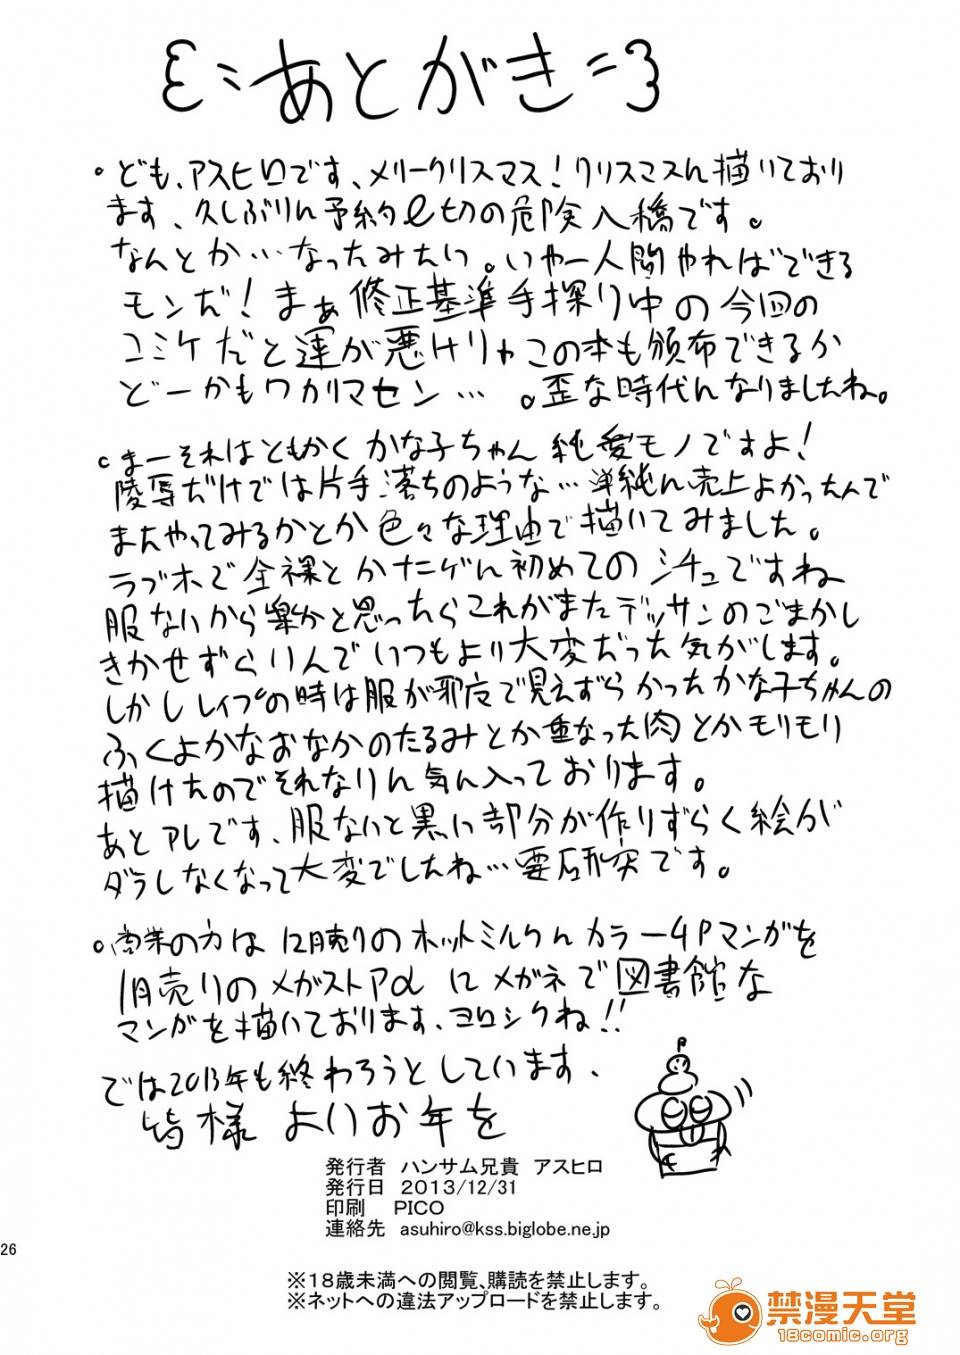 あとがき
・ども、アスヒロです、メリークリスマス!クリスマスに描いており
ます、久しぶりに予約〆切の危険入稿です。
なんとか…なったみたい。いやー人間やればできる
モンだ!まぁ修正基準手探り中の今回の
コミケだと運が悪けりゃこの本も頒布できるか
どーかもワカリマセン…。歪な時代になりましたね。
・まーそれはともかくかな子ちゃん純愛モノですよ!
陵辱だけでは片手落ちのような…単純に売上よかったんで
またやってみるかとか色々な理由で描いてみました。
ラブホで全裸とかナニゲに初めてのシチュですね
服ないから楽かと思ったらこれがまたデッサンのごまかし
きかせずらいんでいつもより大変だった気がします。
しかしレイプの時は服が邪魔で見えずらかったかな子ちゃんの
ふくよかなおなかのたるみとか重なった肉とかモリモリ
描けたのでそれなりに気に入っております。
あとアレです、服ないと黒い部分が作りずらく絵が
ダラしなくなって大変でしたね…要研究です。
・商業の方は12月売りのホットミルクにカラー4Pマンガを
1月売りのメガストアαにメガネで図書館な
マンガを描いております、ヨロシクね!!
では2013年も終わろうとしています、
皆様よいお年を
発行者 ハンサム兄貴 アスヒロ
発行日 2013/12/31
印刷 PICO
連絡先 asuhiro@kss.biglobe.ne.jp
26
※18歳未満への閲覧、購読を禁止します。
※ネットへの違法アップロードを禁止します。
禁漫天堂
18comic.org